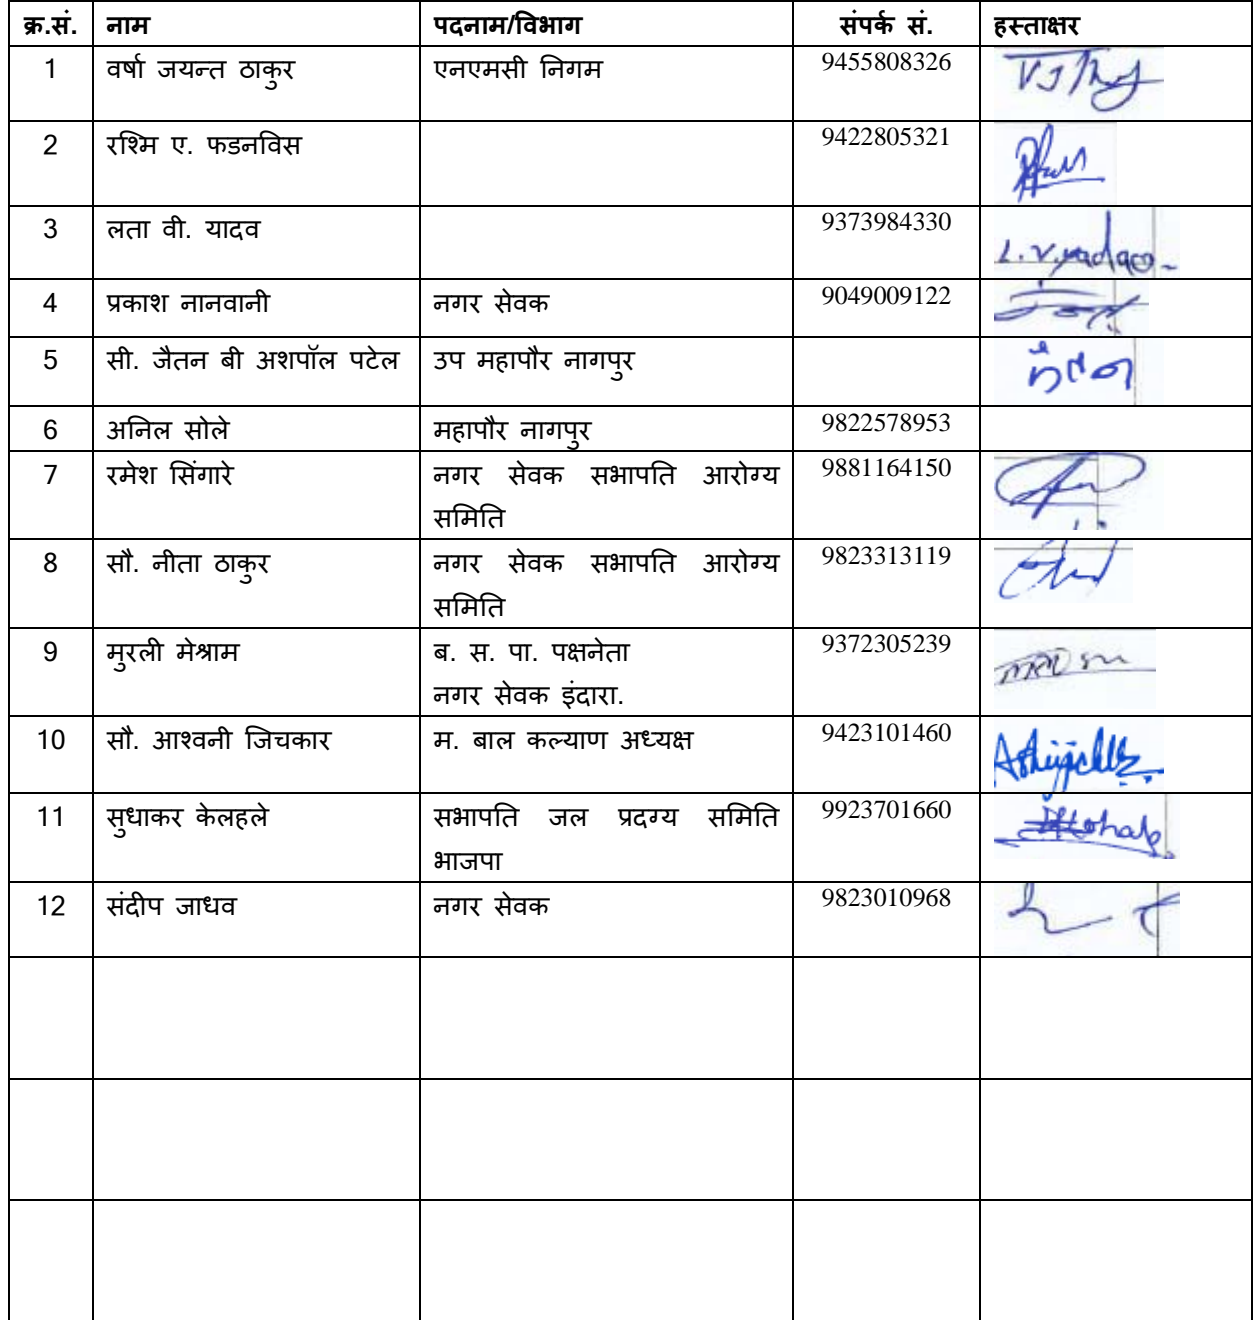 क्र.सं. नाम पदनाम/विभाग संपर्क सं. हस्ताक्षर
1 वर्षा जयन्त ठाकुर एनएमसी निगम 9455808326
2 रश्मि ए. फडनविस 9422805321
3 लता वी. यादव 9373984330 L.V.yadao
4 प्रकाश नानवानी नगर सेवक 9049009122
5 सी. जैतन बी अशपॉल पटेल उप महापौर नागपुर
6 अनिल सोले महापौर नागपुर 9822578953
7 रमेश सिंगारे नगर सेवक सभापति आरोग्य 9881164150
समिति
8 सौ. नीता ठाकुर नगर सेवक सभापति आरोग्य 9823313119
समिति
9 मुरली मेश्राम ब. स. पा. पक्षनेता 9372305239
नगर सेवक इंदारा.
10 सौ. आश्वनी जिचकार म. बाल कल्याण अध्यक्ष 9423101460
11 सुधाकर केलहले सभापति जल प्रदग्य समिति 9923701660
भाजपा
12 संदीप जाधव नगर सेवक 9823010968